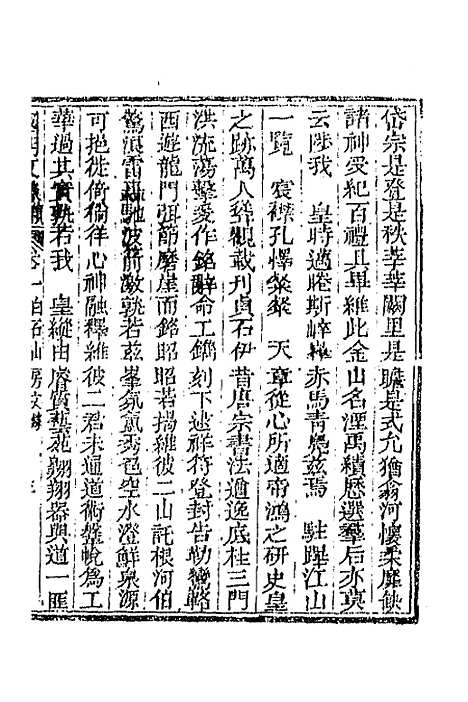 岱宗是登是秩莘莘闕里是瞻是式允猶翕河懷柔靡缺
諸神受紀百禮具畢維此金山名湮禹績歷選羣后亦莫
云陟我　皇時邁睠斯崒嵂赤馬青鳧茲焉　駐蹕江山
一覽　宸襟孔懌粲粲　天章從心所適帝鴻之研史皇
之跡萬人聳觀載刊貞石伊昔唐宗書法遒逸底柱三門
洪流蕩擊爰作銘辭命工鐫刻下逮祥符登封告勒鸞輅
西遊龍門弭節磨崖而銘昭昭若揭維彼二山託根河伯
驚湞雷轟馳波箭激孰若茲峯氛氳秀色空水澄鮮泉源
可挹徙倚徜徉心神融釋維彼二君未通道術鞶帨為工
華過其實孰若我　皇縱由膺質藝苑翱翔器與道一匪